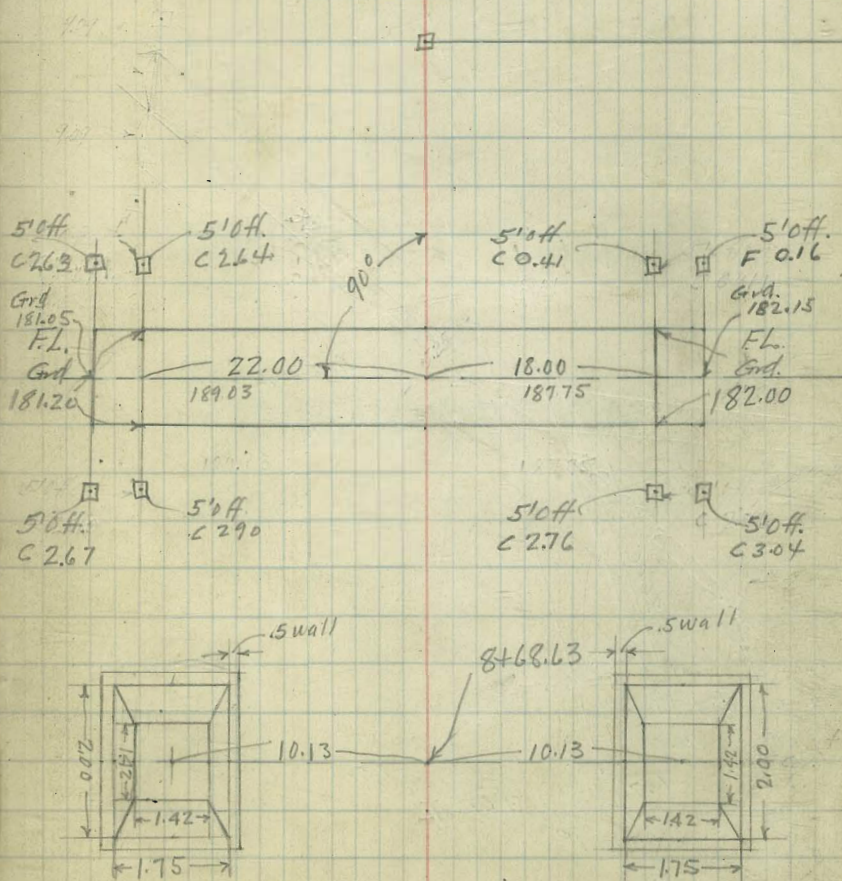 5'off.
C 2.63
5'off.
C 2.64
90°
5'off.
C 0.41
5'off.
F 0.16
Grd
181.05
F.L.
Grd
181.20
22.00
189.03
18.00
187.75
Grd.
182.15
F.L.
Grd.
182.00
5'off.
C 2.67
5'off
C 2.90
5'off
C 2.76
5'off.
C 3.04
.5 wall
8+68.63
.5 wall
2.00
1.42
1.42
1.75
10.13
10.13
1.42
2.00
1.42
1.75